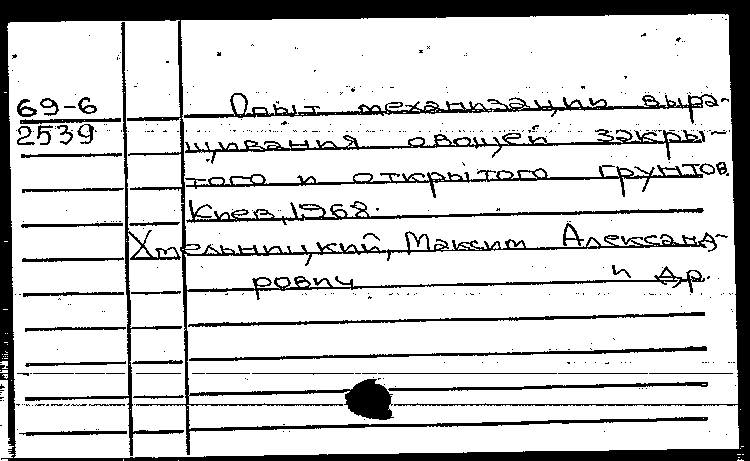 69-6 Опыт механизации выра-
2539 щивания овощей закры-
того и открытого грунтов
Киев, 1968.
Хмельницкий, Максим Александ-
рович и др.